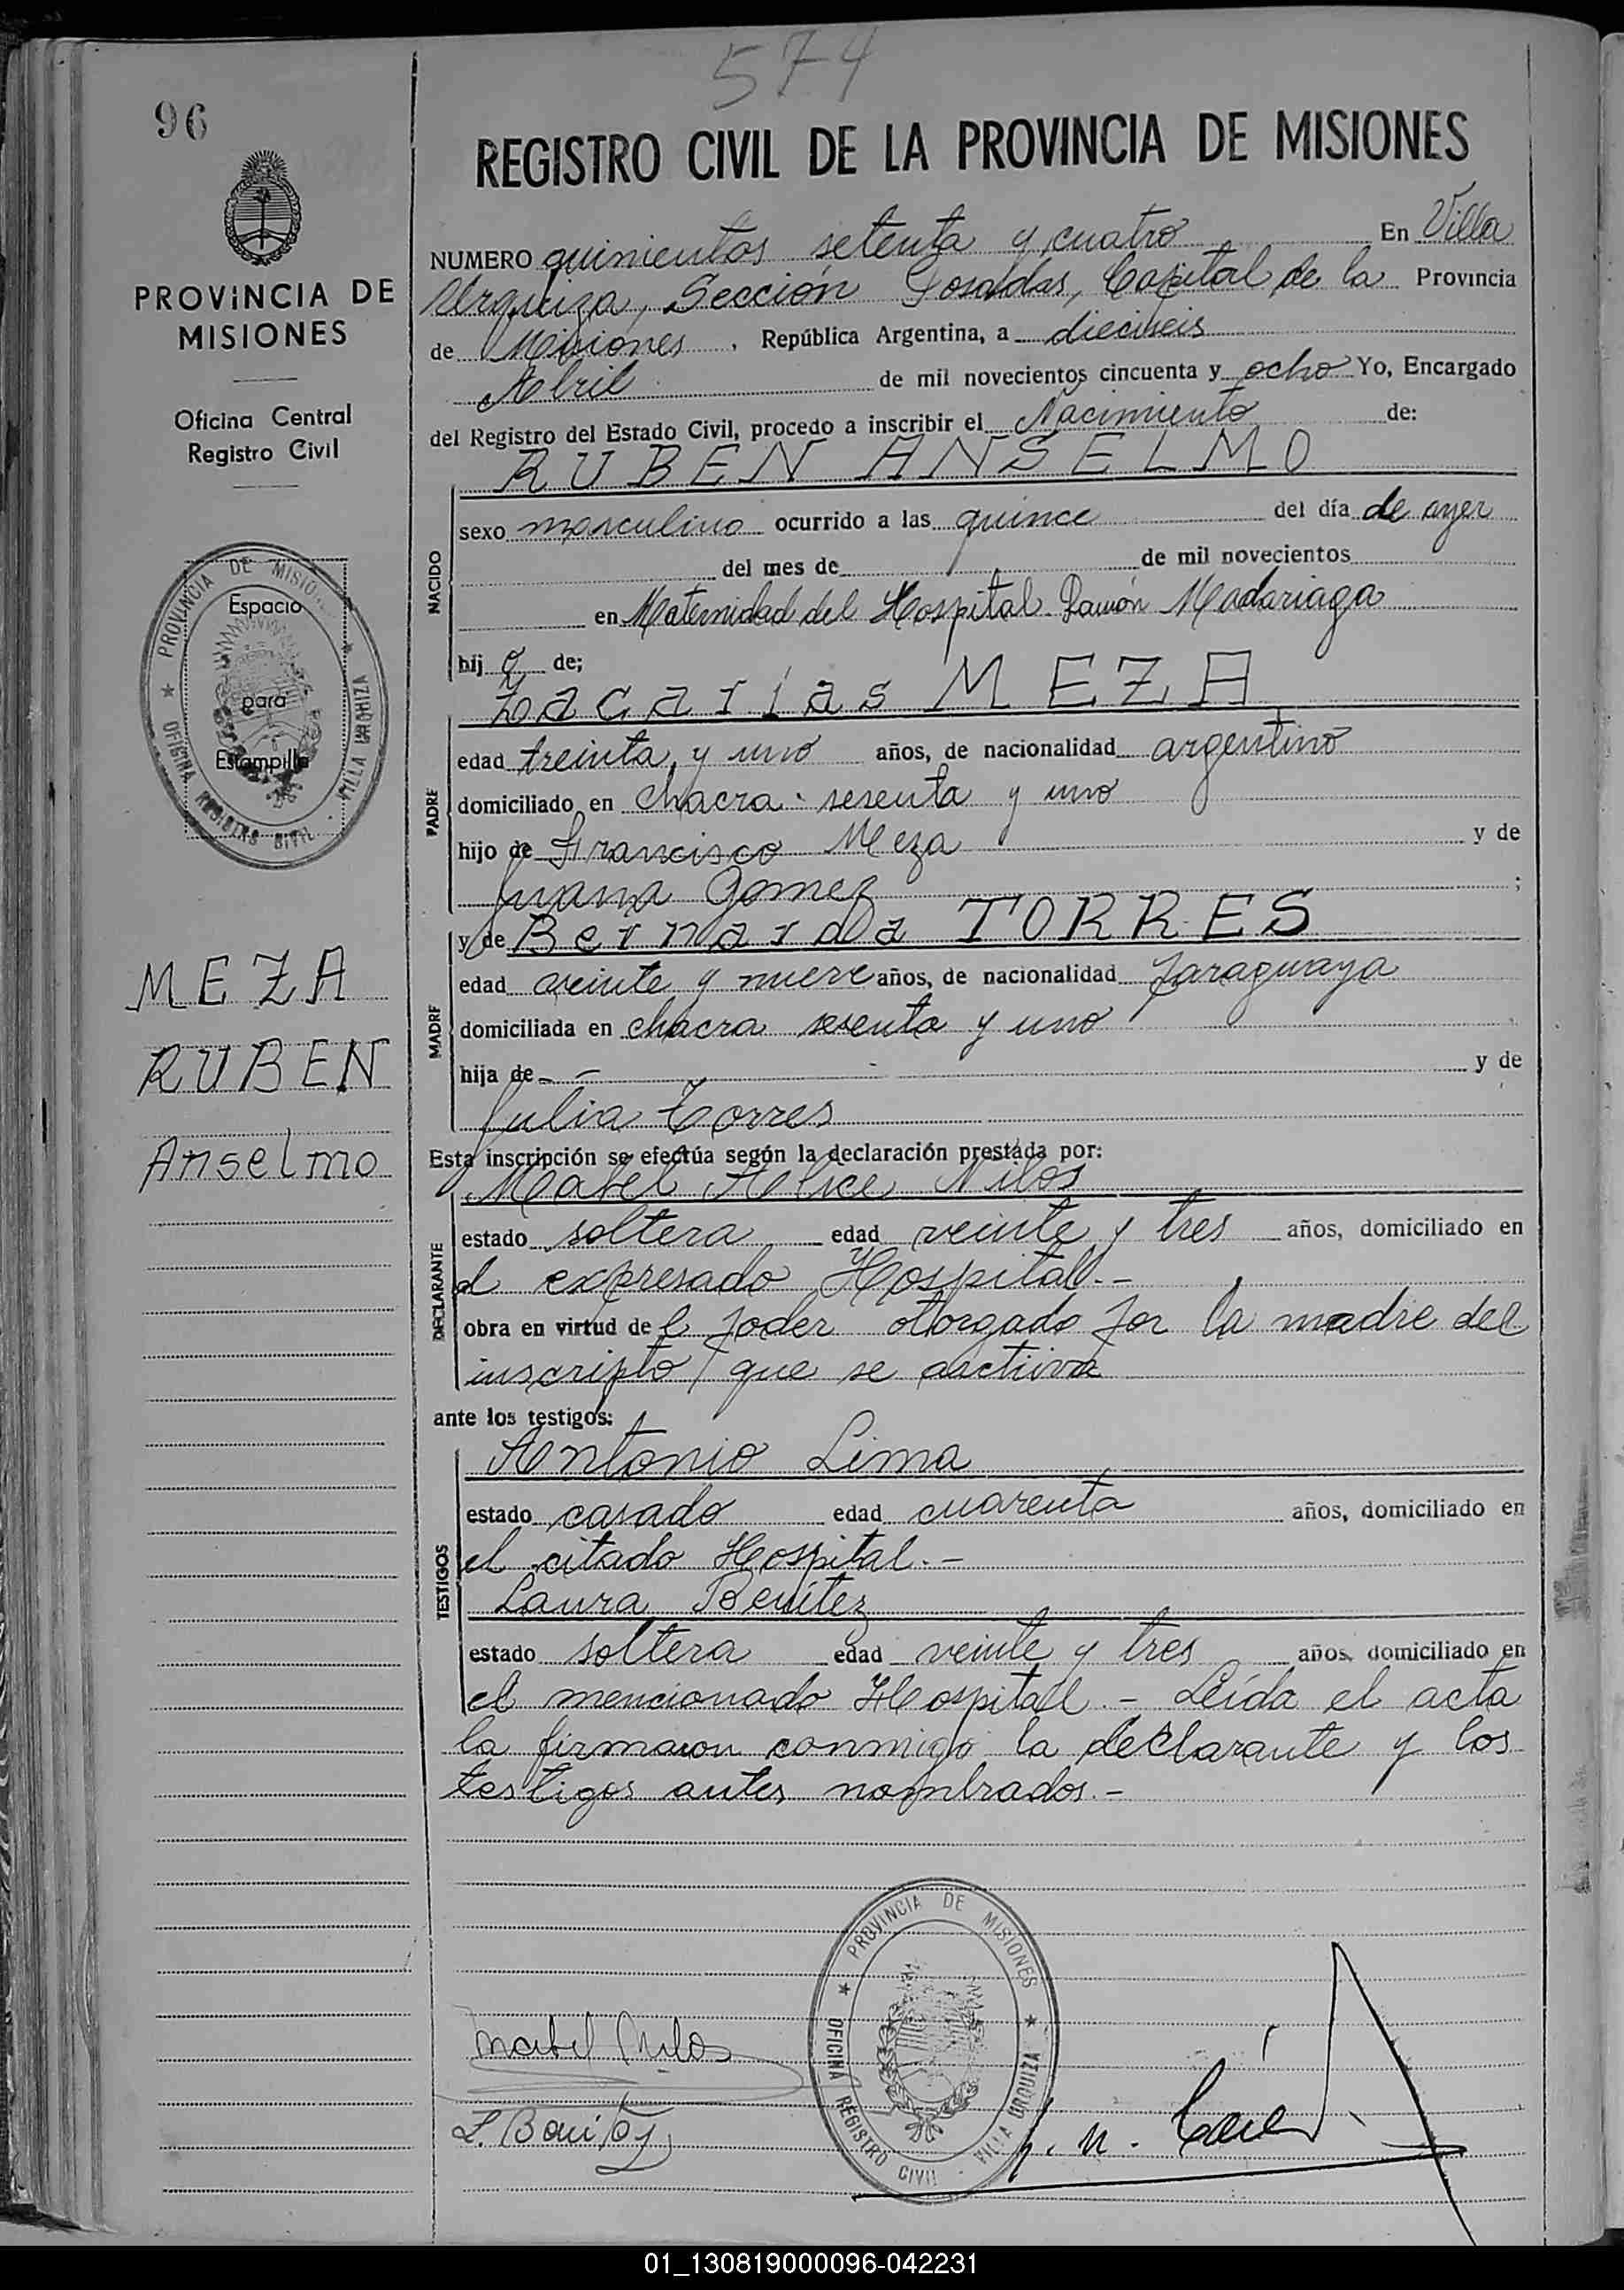 574
96
REGISTRO CIVIL DE LA PROVINCIA DE MISIONES
PROVINCIA DE
MISIONES
Oficina Central
Registro Civil
NUMERO quinientos setenta y cuatro En Villa
Urquiza, Sección Posadas, Capital de la Provincia
de Misiones, República Argentina, a dieciseis
Abril de mil novecientos cincuenta y ocho Yo, Encargado
del Registro del Estado Civil, procedo a inscribir el Nacimiento de:
RUBEN ANSELMO
NACIDO
sexo masculino ocurrido a las quince del día de ayer
del mes de de mil novecientos
en Maternidad del Hospital Ramón Madariaga
hij o de;
Zacarias MEZA
PADRE
edad treinta y uno años, de nacionalidad argentino
domiciliado en chacra sesenta y uno
hijo de Francisco Meza y de
Juana Gomez ;
y de Bernarda TORRES
MADRE
edad veinte y nueve años, de nacionalidad paraguaya
domiciliada en chacra sesenta y uno
hija de - - y de
Julia Torres
Esta inscripción se efectúa según la declaración prestada por:
Mabel Alice Nilos
DECLARANTE
estado soltera edad veinte y tres años, domiciliado en
el expresado Hospital.-
obra en virtud de l poder otorgado por la madre del
inscripto que se archiva
ante los testigos:
Antonio Lima
TESTIGOS
estado casado edad cuarenta años, domiciliado en
el citado Hospital.-
Laura Benítez
estado soltera edad veinte y tres años, domiciliado en
el mencionado Hospital.- Leída el acta
la firmaron conmigo la declarante y los
testigos antes nombrados.-
Espacio
para
Estampilla
PROVINCIA DE MISIONES
OFICINA REGISTRO CIVIL - VILLA URQUIZA
MEZA
RUBEN
Anselmo
PROVINCIA DE MISIONES
OFICINA REGISTRO CIVIL - VILLA URQUIZA
Mabel Nilos
L. Benitez
01_130819000096-042231